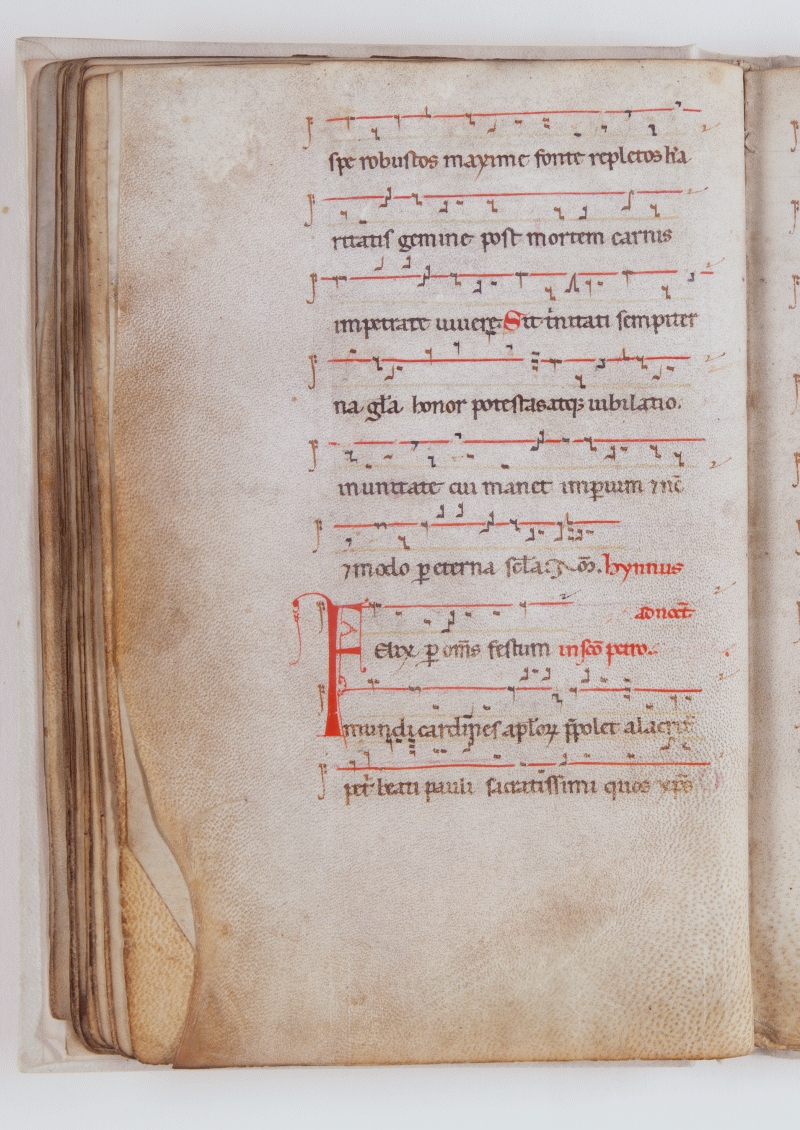 spe robustos maxime fonte repletos ka
ritatis gemine post mortem carnis
impetrate uiuere. Sit tinitati sempiter
na gl'a honor potestas atq; iubilatio.
in unitate cui manet imperium ⁊ nc̄
⁊ modo ꝑ eterna hymnus
ad noct̄
Felix ꝑ om̄s festum in sc̄o petro.
mundi cardines apl'oꝝ p̄pollet alacrit̄
petri beati pauli sacratissimi quos xp̄s